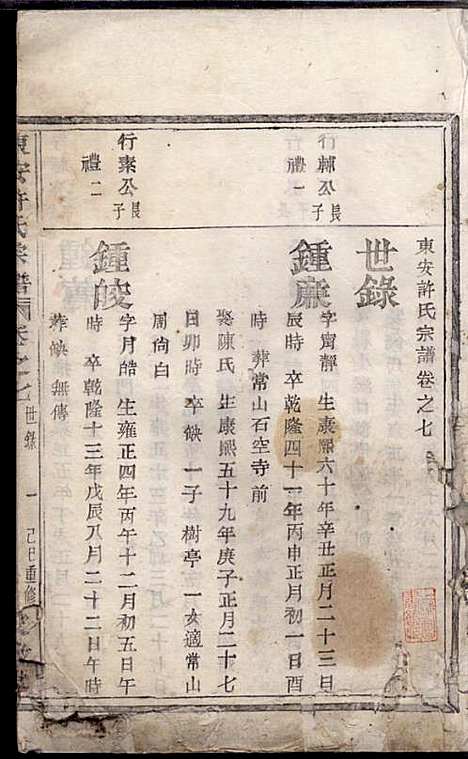 東安許氏宗譜卷之七
世錄
行輔公長子
禮一
鍾廉
字甯靜 生康熙六十年辛丑正月二十三日
辰時 卒乾隆四十一年丙申正月初一日酉
時 葬常山石空寺前
娶陳氏 生康熙五十九年庚子正月二十七
日卯時 卒缺 一子 樹亭 一女適常山
周尙白
行素公長子
禮二
鍾皎
字月皓 生雍正四年丙午十二月初五日午
時 卒乾隆十三年戊辰八月二十二日午時
葬缺無傳
東安許氏宗譜 卷之七 世錄 一 己巳重修